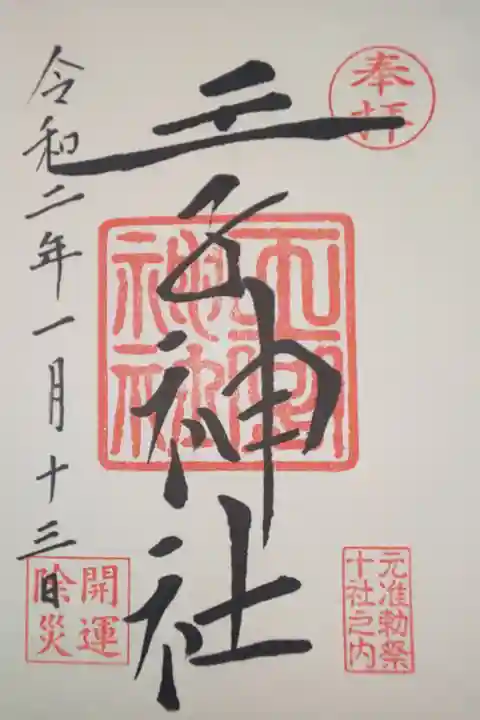 奉拝
元准勅祭
十社之内
王子神社
王子
神社
開運
除災
令和二年一月十三日